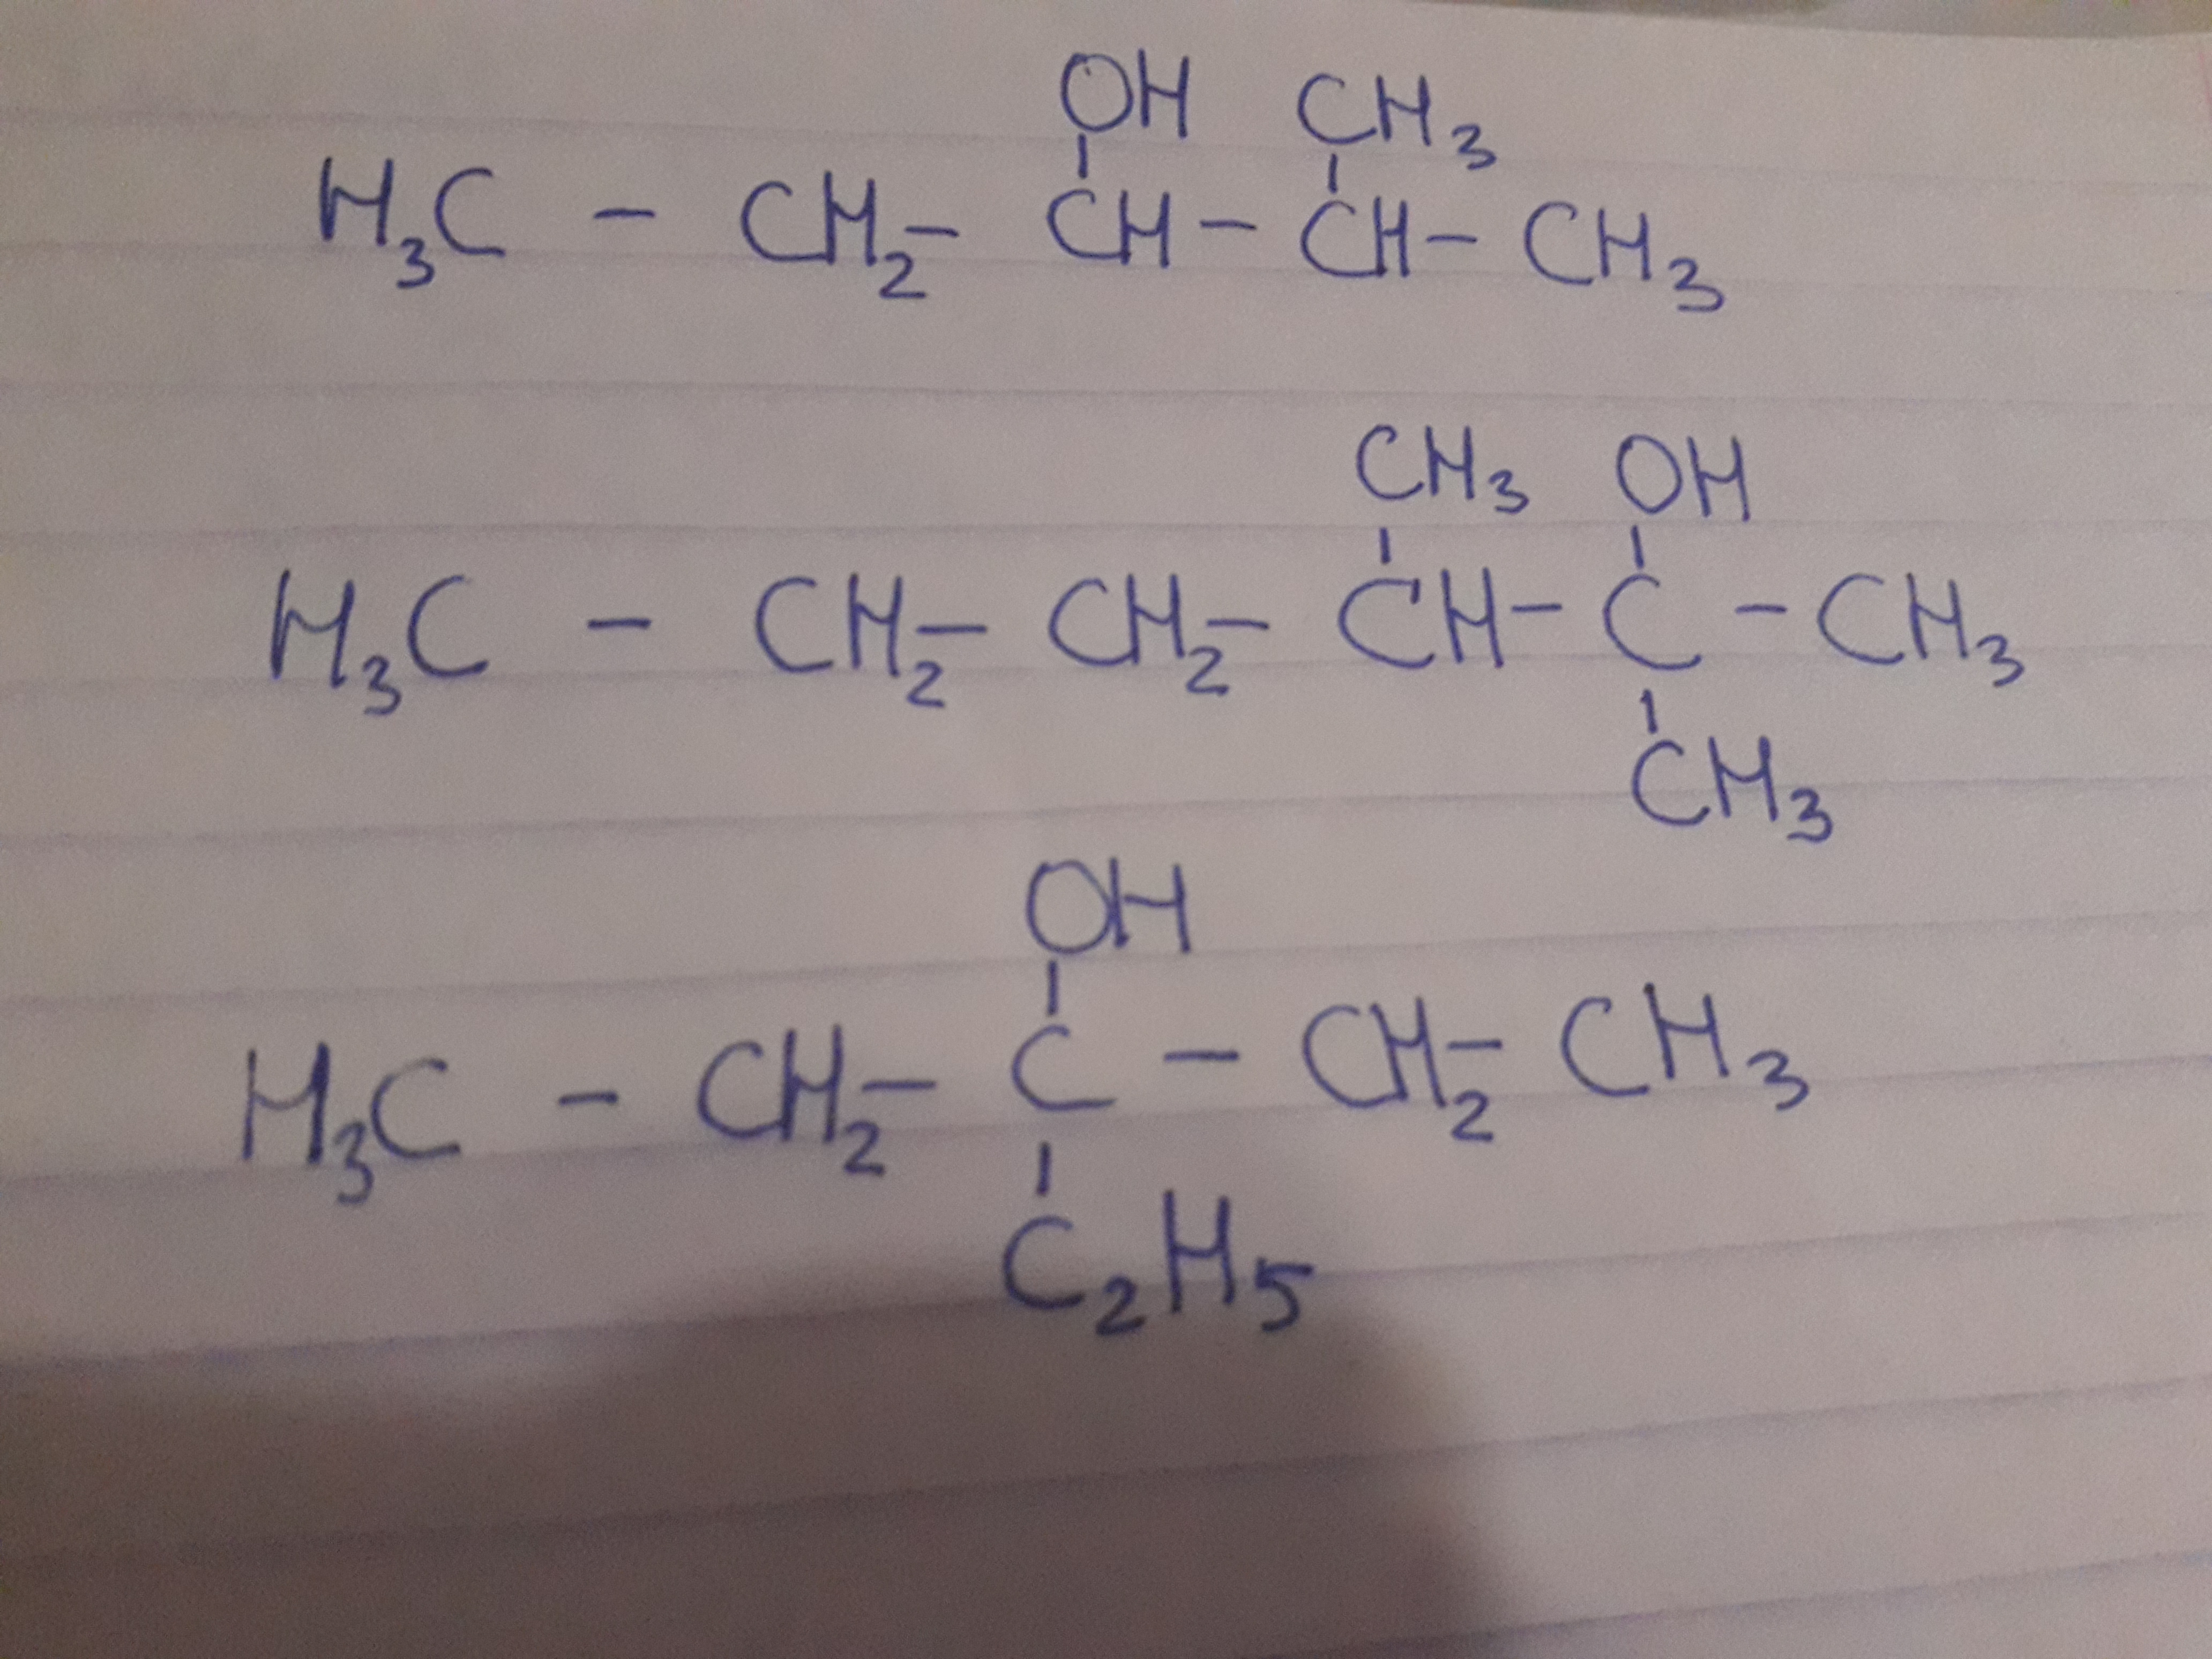 OH CH3
H3C - CH2- CH - CH - CH3
CH3 OH
H3C - CH2- CH2- CH - C - CH3
CH3
OH
H3C - CH2- C - CH2- CH3
C2H5